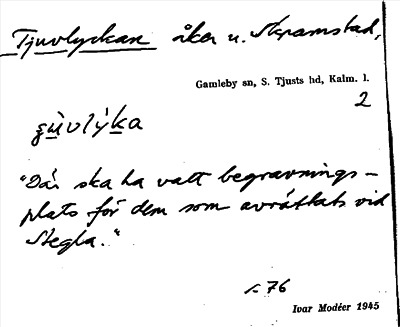 Tjuvlyckan åker u. Skramstad,
Gamleby sn, S. Tjusts hd, Kalm. l.
2
ʒùvlýka
"Där ska ha vatt begravnings-
plats för dem som avrättats vid
Stegla."
s. 76
Ivar Modéer 1945